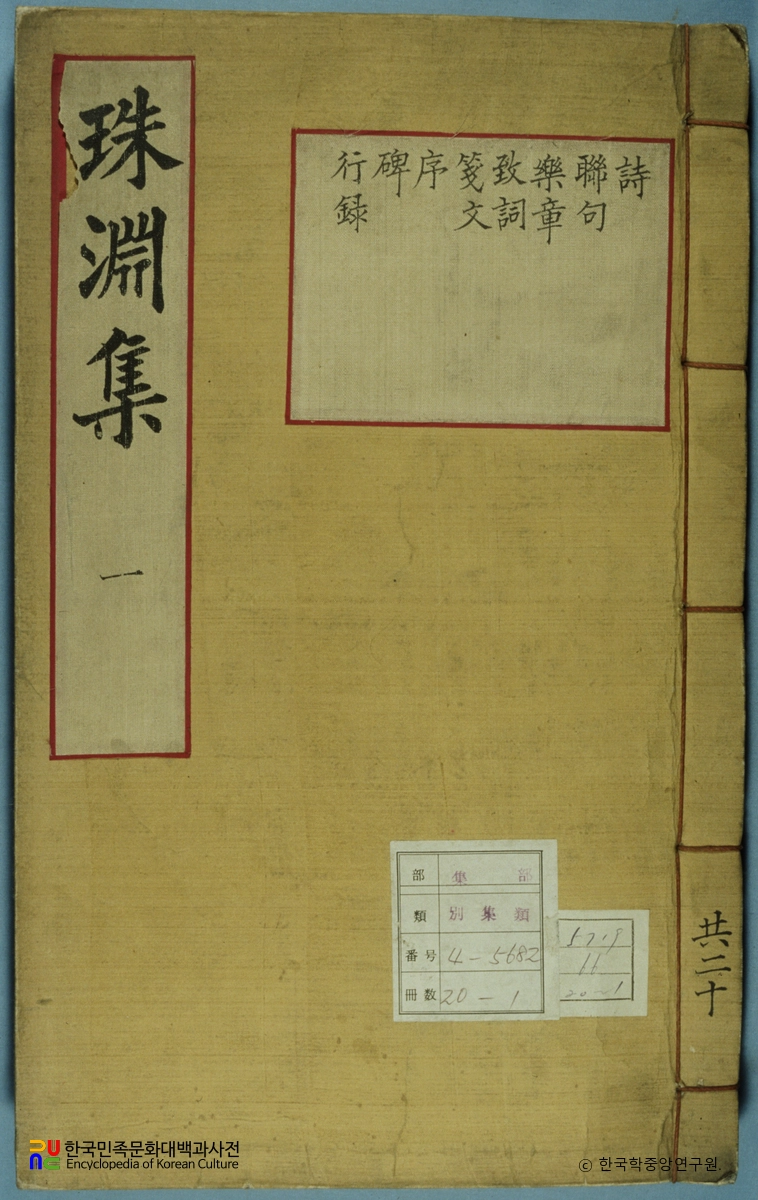 珠淵集
一
詩
聯句
樂章
致詞
箋文
序
碑
行録
共二十
部 集部
類 別集類
番号 4-5682
冊数 20-1
57.9
16
20-1
한국민족문화대백과사전
Encyclopedia of Korean Culture
© 한국학중앙연구원.